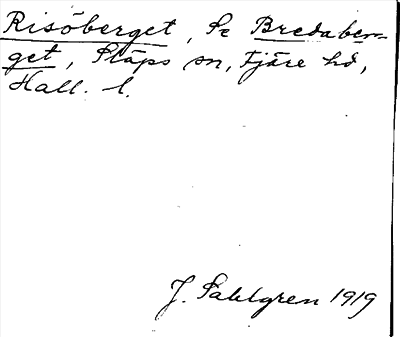 Risöberget, Se Bredaber-
get, Släps sn, Fjäre hd,
Hall. l.
J. Sahlgren 1919